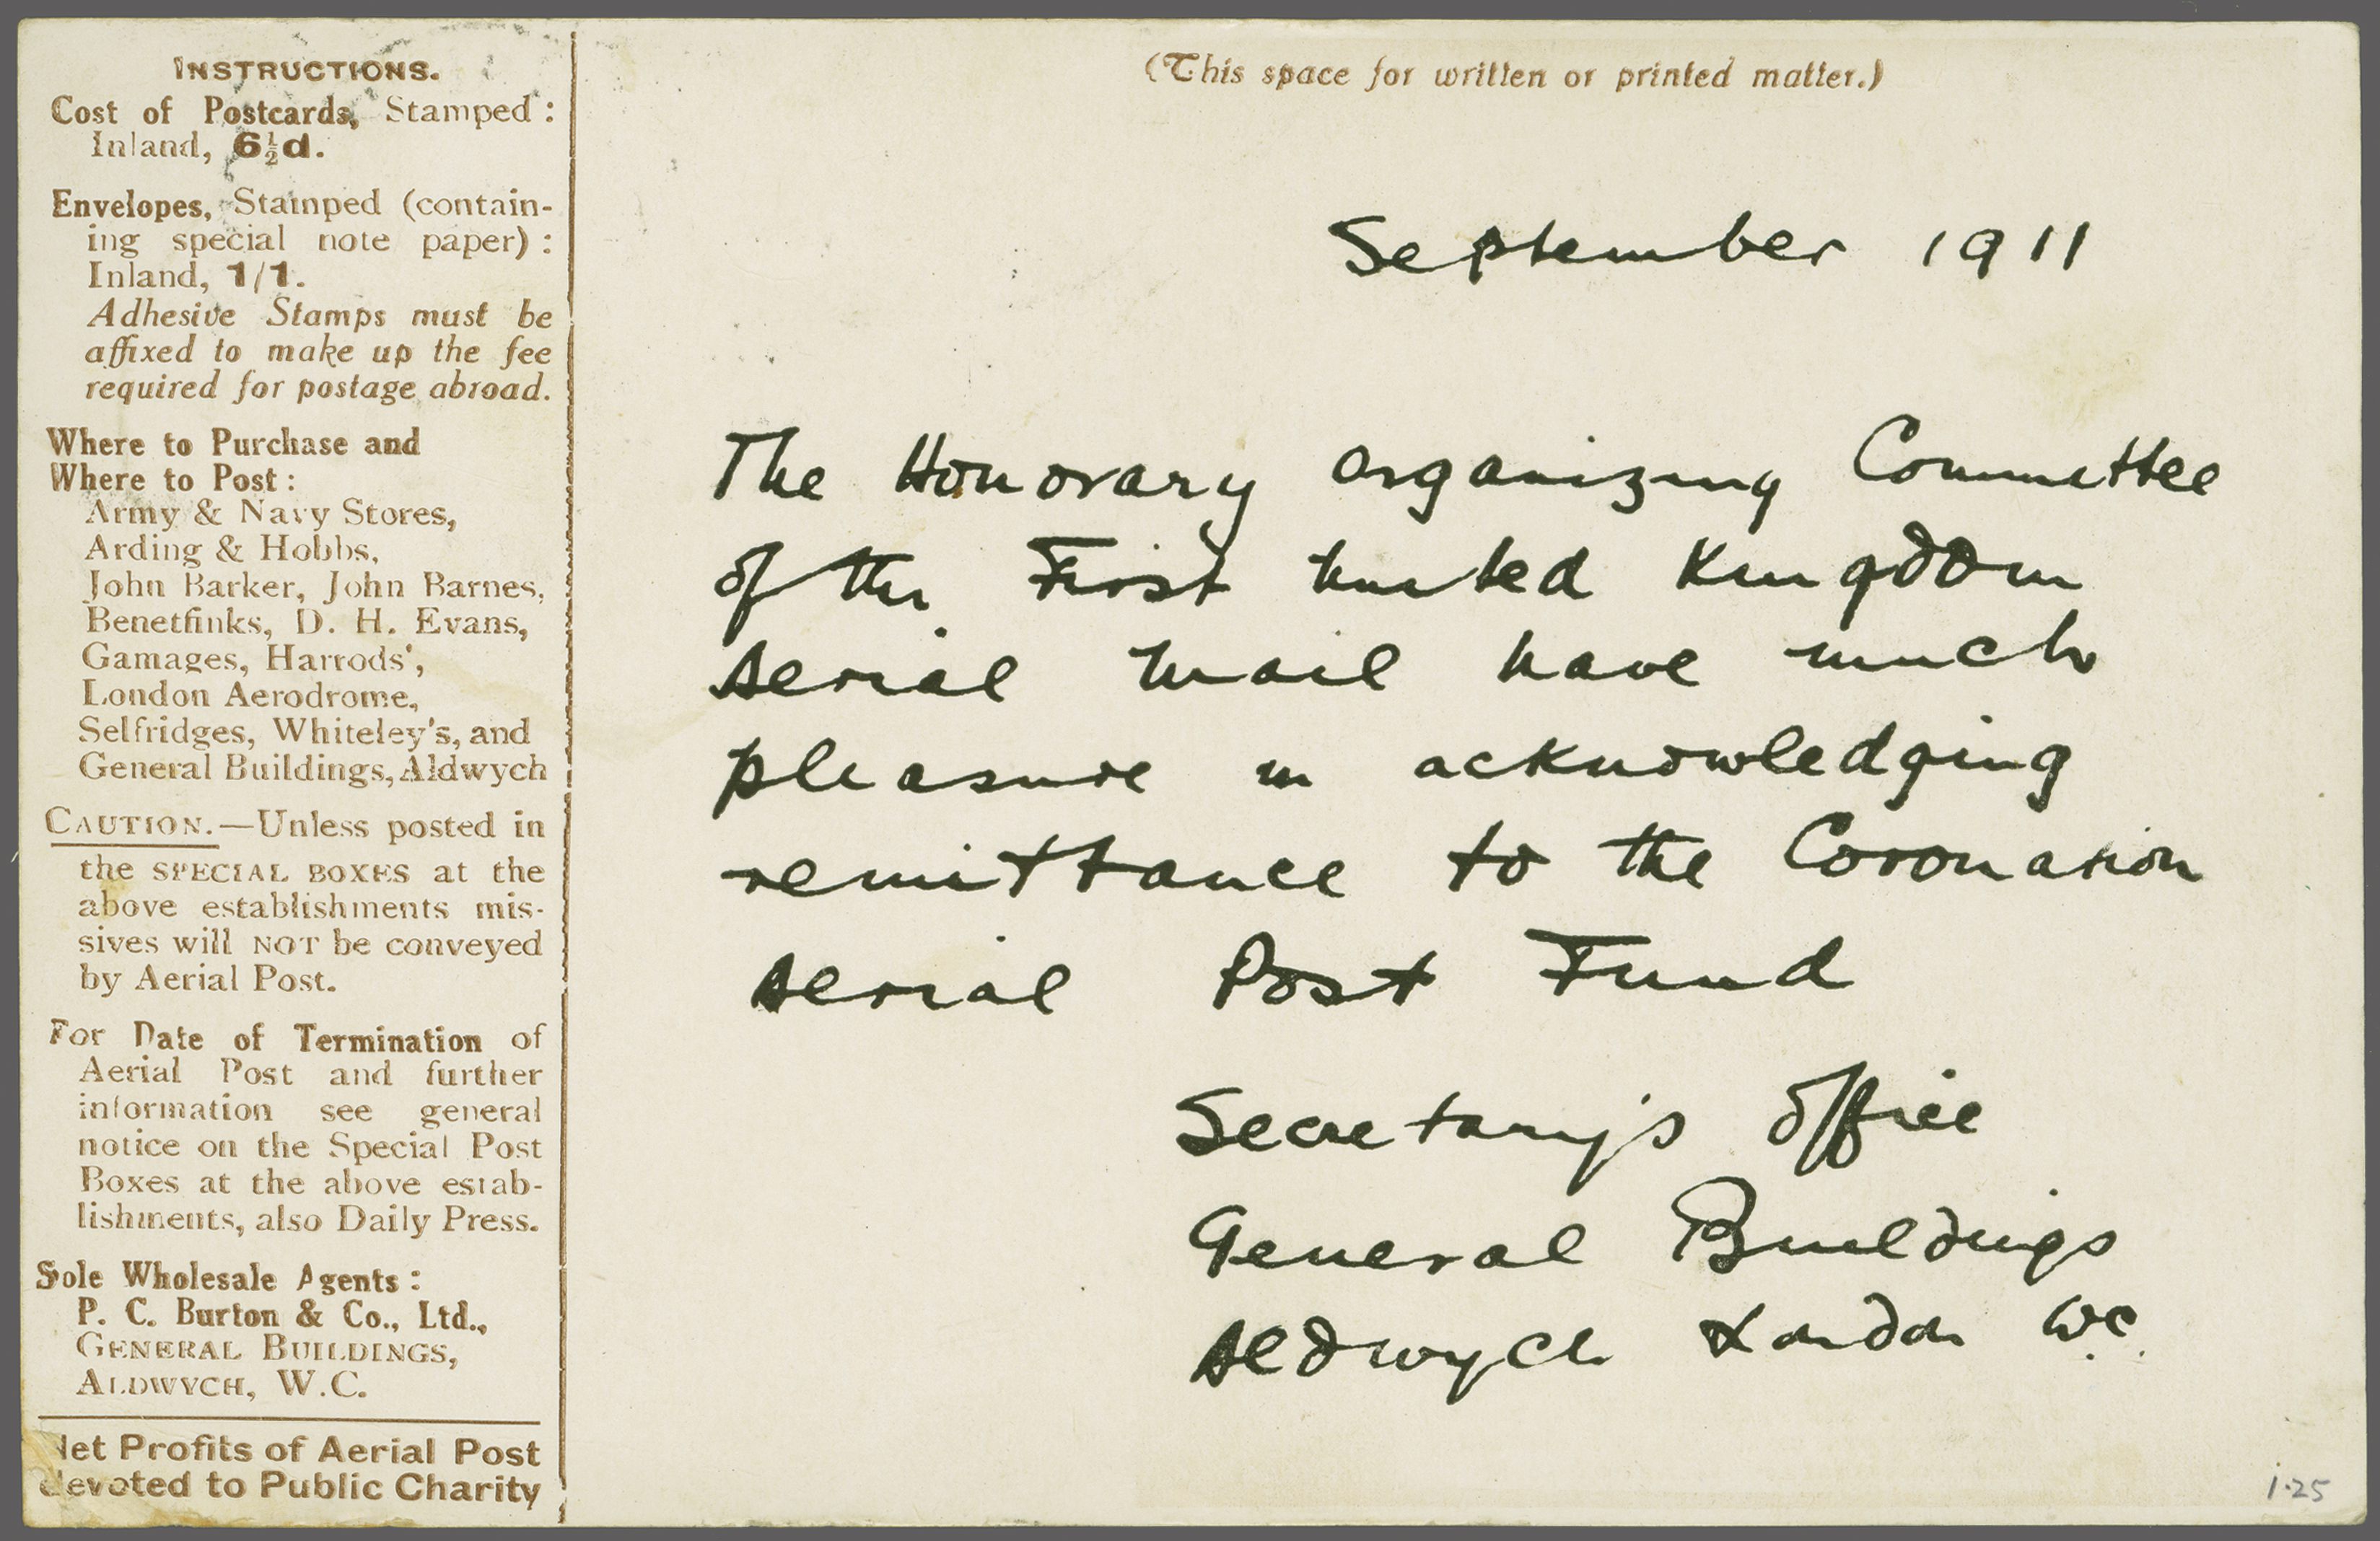 INSTRUCTIONS.
Cost of Postcards, Stamped:
Inland, 6½d.
Envelopes, Stamped (contain-
ing special note paper):
Inland, 1/1.
Adhesive Stamps must be
affixed to make up the fee
required for postage abroad.
Where to Purchase and
Where to Post:
Army & Navy Stores,
Arding & Hobbs,
John Barker, John Barnes,
Benetfinks, D. H. Evans,
Gamages, Harrods',
London Aerodrome,
Selfridges, Whiteley's, and
General Buildings, Aldwych
CAUTION.—Unless posted in
the SPECIAL BOXES at the
above establishments mis-
sives will NOT be conveyed
by Aerial Post.
For Date of Termination of
Aerial Post and further
information see general
notice on the Special Post
Boxes at the above estab-
lishments, also Daily Press.
Sole Wholesale Agents:
P. C. Burton & Co., Ltd.,
GENERAL BUILDINGS,
ALDWYCH, W.C.
Net Profits of Aerial Post
devoted to Public Charity
(This space for written or printed matter.)
September 1911
The Honorary Organizing Committee
of the First United Kingdom
Aerial Mail have much
pleasure in acknowledging
remittance to the Coronation
Aerial Post Fund
Secretary's Office
General Buildings
Aldwych London W.C.
1.25